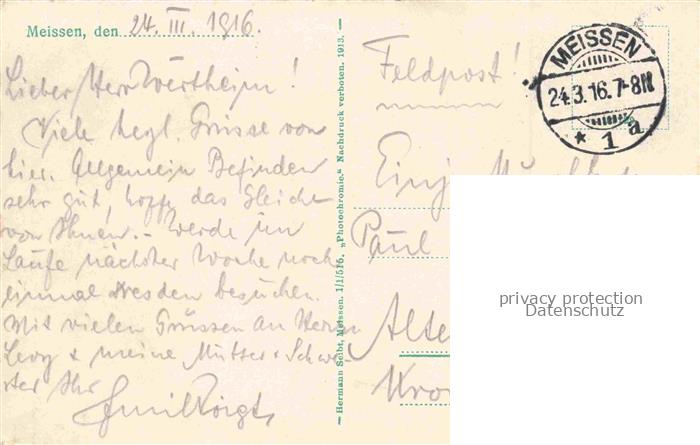 Meissen, den 24. III. 1916.
Lieber Herr Wertheim!
Viele herzl. Grüsse von
hier. Allgemein Befinden
sehr gut, hoffe das Gleiche
von Ihnen. – Werde im
Laufe nächster Woche noch
einmal Dresden besuchen.
Mit vielen Grüssen an Herrn
Levy & meine Mutter & Schwe-
ster Ihr
Emil Voigt
Hermann Seibt, Meissen. 1/1/515. „Photochromie.“ Nachdruck verboten. 1913.
Feldpost!
MEISSEN
24.3.16.7-8N
* 1 a
Einj.
Paul
Alte
privacy protection
Datenschutz